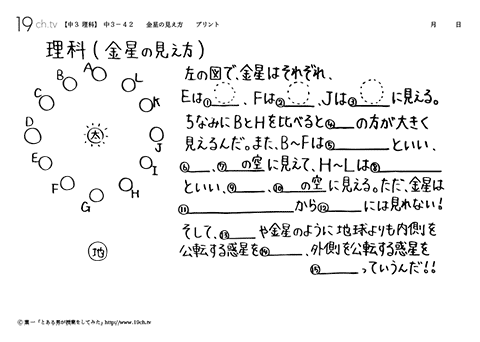 19ch.tv 【中3 理科】 中3-42 金星の見え方 プリント 月 日
理科(金星の見え方)
A
B
C
D
E
F
G
H
I
J
K
L
太
地
左の図で、金星はそれぞれ、
Eは① 、Fは② 、Jは③ に見える。
ちなみにBとHを比べると④ の方が大きく
見えるんだ。また、B~Fは⑤ といい、
⑥ 、⑦ の空に見えて、H~Lは⑧
といい、⑨ 、⑩ の空に見える。ただ、金星は
⑪ から⑫ には見れない!
そして、⑬ や金星のように地球よりも内側を
公転する惑星を⑭ 、外側を公転する惑星を
⑮ っていうんだ!!
© 葉一「とある男が授業をしてみた」http://www.19ch.tv